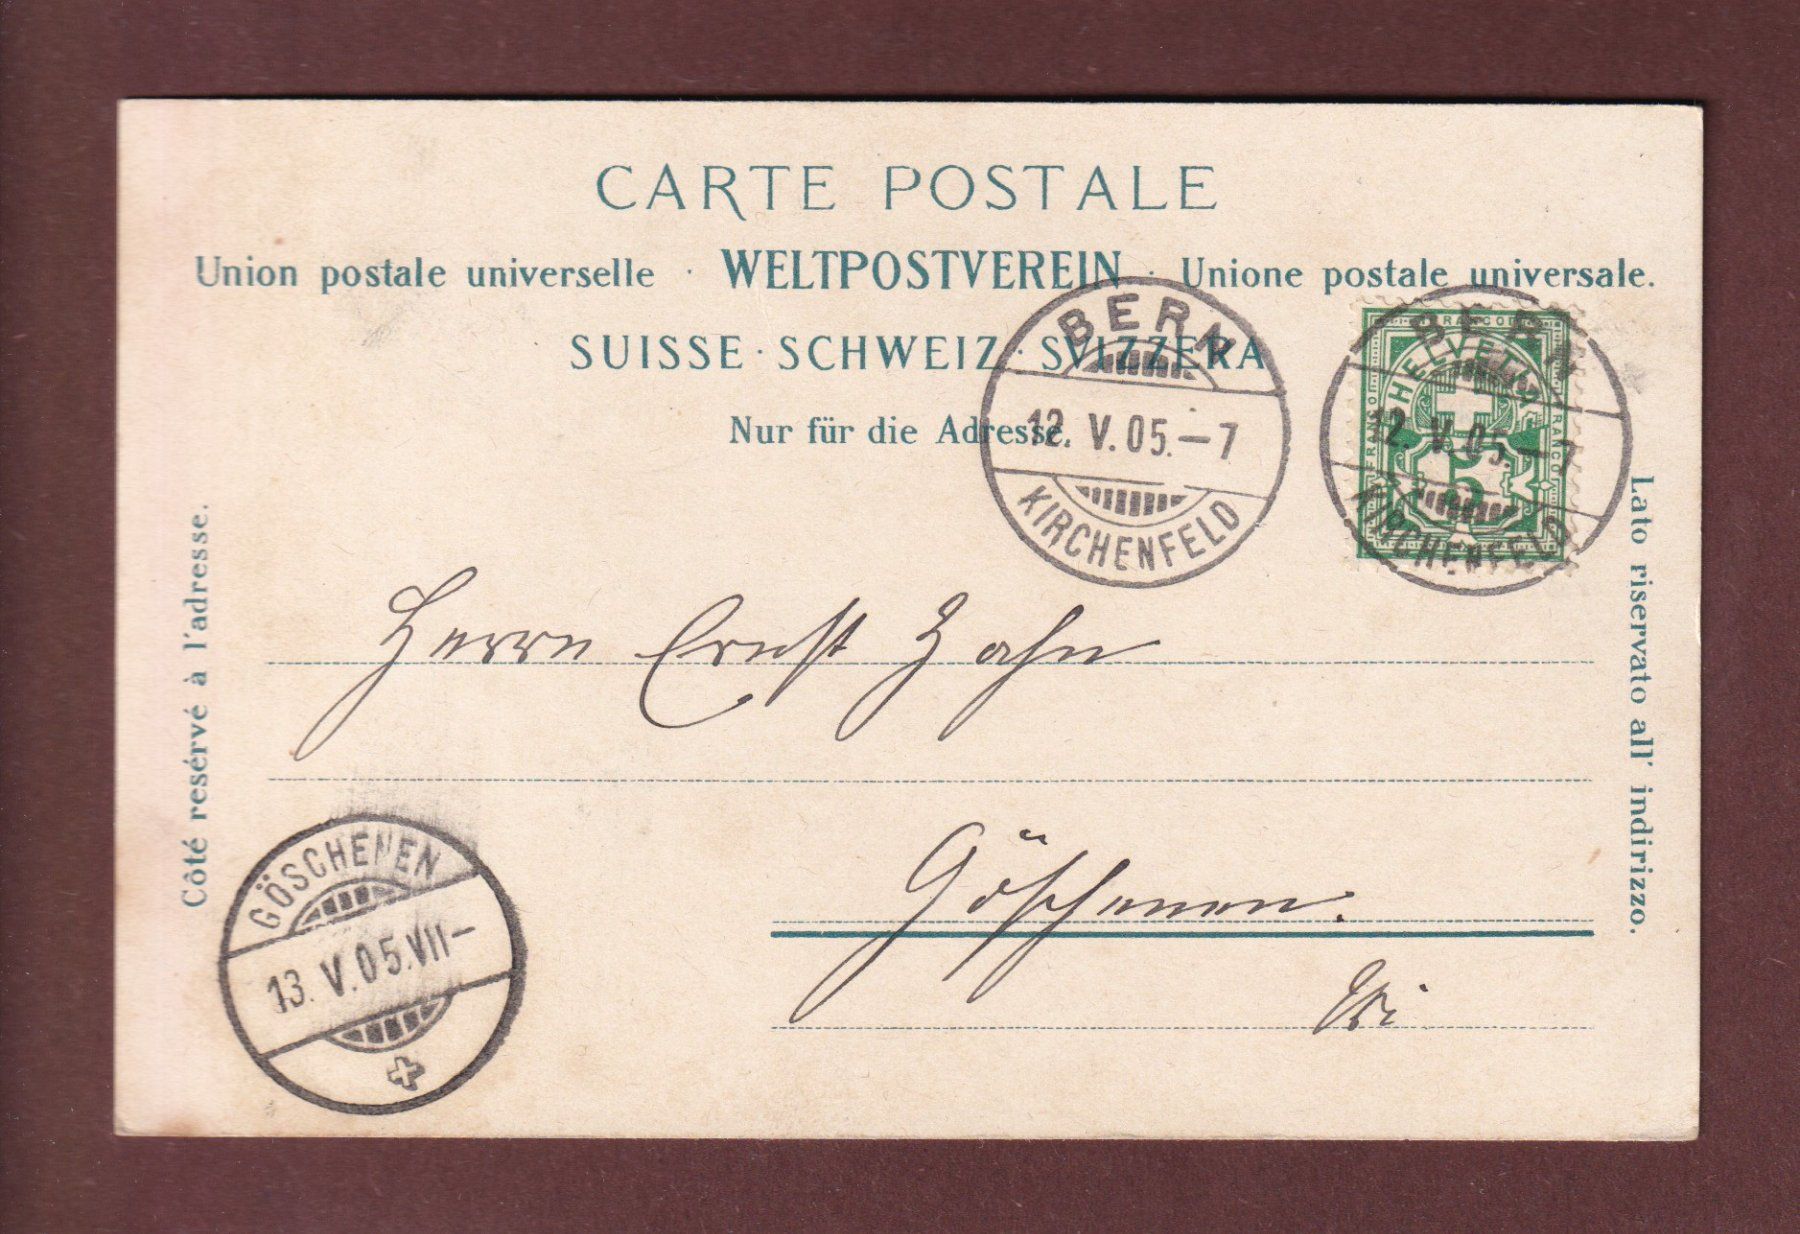 CARTE POSTALE
Union postale universelle · WELTPOSTVEREIN · Unione postale universale.
SUISSE · SCHWEIZ · SVIZZERA
Nur für die Adresse.
BERN
12. V. 05. – 7
KIRCHENFELD
BERN
12. V. 05. – 7
KIRCHENFELD
FRANCO
HELVETIA
FRANCO
FRANCO
5
Côté resérvé à l'adresse.
Lato riservato all' indirizzo.
Herrn Ernst Zahn
Göschenen.
Uri
GÖSCHENEN
13. V. 05. VII –